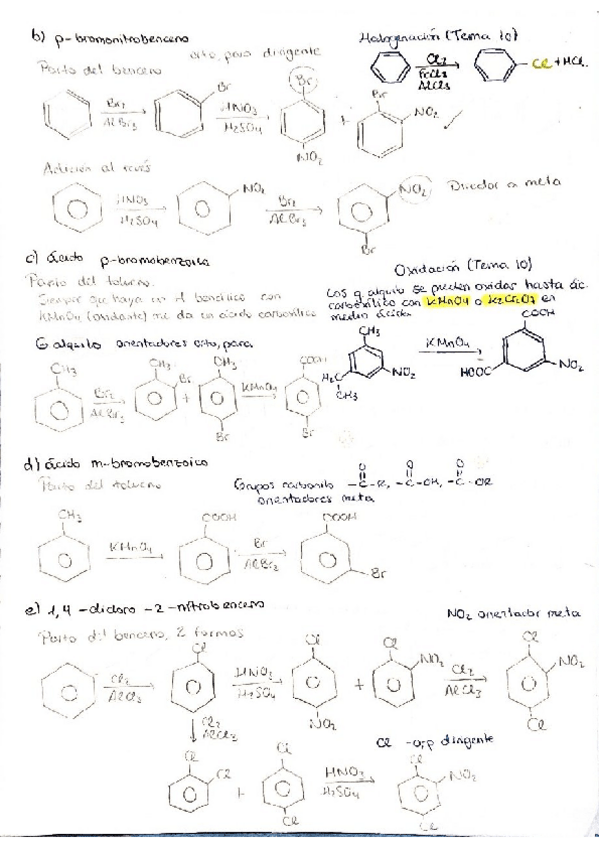 b) p-bromonitrobenceno
orto, para dirigente
Halogenación (Tema 10)
Parto del benceno
Cl2
FeCl3
AlCl3
Cl + HCl.
Br2
AlBr3
Br
HNO3
H2SO4
Br
NO2
+
Br
NO2
Adición al revés
HNO3
H2SO4
NO2
Br2
AlBr3
NO2
Br
Director a meta
c) ácido p-bromobenzoico
Oxidación (Tema 10)
Parto del tolueno.
Los g alquilo se pueden oxidar hasta ác.
carboxílico con KMnO4 o K2Cr2O7 en
medio ácido
Siempre que haya un H bencílico con
KMnO4 (oxidante) me da un ácido carboxílico
G alquilo orientadores orto, para
CH3
Br2
AlBr3
CH3
Br
+
CH3
Br
KMnO4
COOH
Br
CH3
H3C
CH3
NO2
KMnO4
COOH
HOOC
NO2
d) ácido m-bromobenzoico
Parto del tolueno
Grupos carbonilo -C-R, -C-OH, -C-OR
O O O
orientadores meta
CH3
KMnO4
COOH
Br
AlBr3
COOH
Br
e) 1,4-dicloro-2-nitrobenceno
NO2 orientador meta
Parto del benceno, 2 formas
Cl2
AlCl3
Cl
HNO3
H2SO4
Cl
NO2
+
Cl
NO2
Cl2
AlCl3
Cl
NO2
Cl
Cl2
AlCl3
Cl -o,p dirigente
Cl
Cl
+
Cl
Cl
HNO3
H2SO4
Cl
NO2
Cl